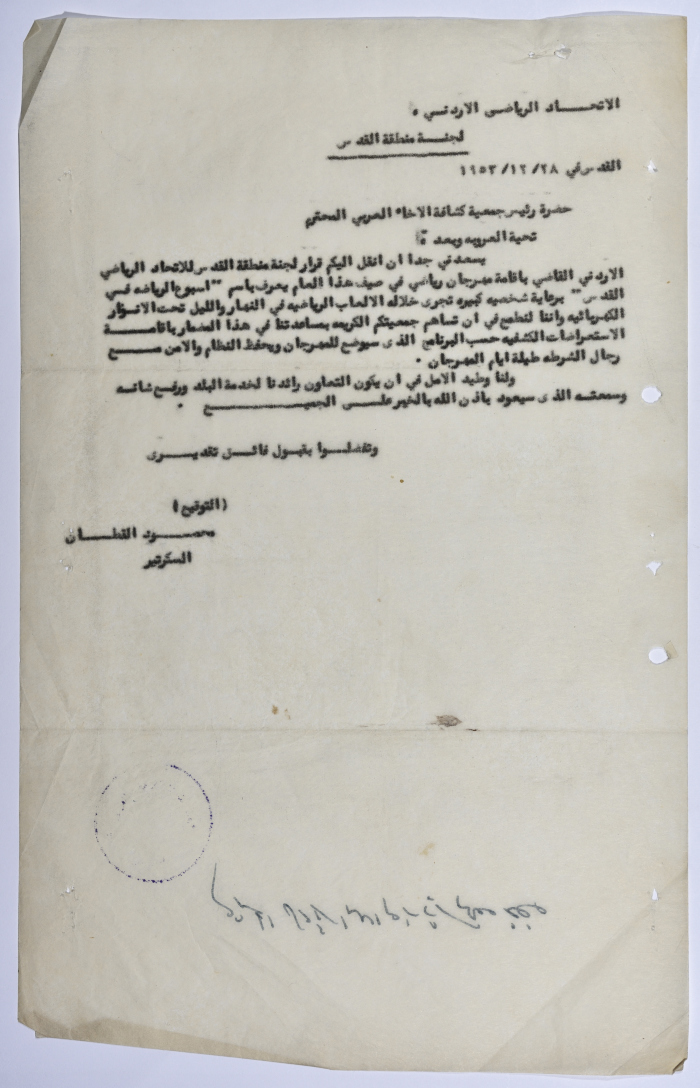 الاتحـــاد الرياضي الاردنـي ،
لجنــة منطقة القدس
القدس في ٢٨/ ١٢/ ١٩٥٣
حضرة رئيس جمعية كشافة الاخاء العربي المحترم
تحية العروبه وبعد ،
يسعدني جدا ان انقل اليكم قرار لجنة منطقة القدس للاتحاد الرياضي
الاردني القاضي باقامة مهرجان رياضي في صيف هذا العام يعرف باسم " اسبوع الرياضه فـي
القدس " برعاية شخصيه كبيره تجرى خلاله الالعاب الرياضيه في النهار والليل تحت الانـوار
الكهربائيه واننا لنطمع في ان تساهم جمعيتكم الكريمه بمساعدتنا في هذا المضمار باقامــة
الاستعراضات الكشفيه حسب البرنامج الذى سيوضع للمهرجان وبحفظ النظام والامن مــع
رجال الشرطه طيلة ايام المهرجان .
ولنا وطيد الامل في ان يكون التعاون رائدنا لخدمة البلد ورفع شانــه
وسمعتــه الذى سيعود باذن الله بالخير علــى الجميـــع .
وتفضلـــوا بقبول فائــق تقديـــرى
(التوقيع)
محمـــود القطـــان
السكرتير